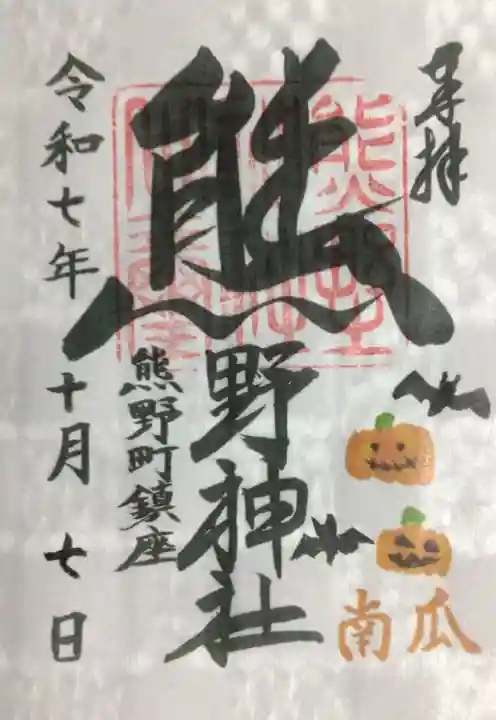 奉拝
熊野神社
熊野町鎮座
令和七年 十月 七日
南瓜